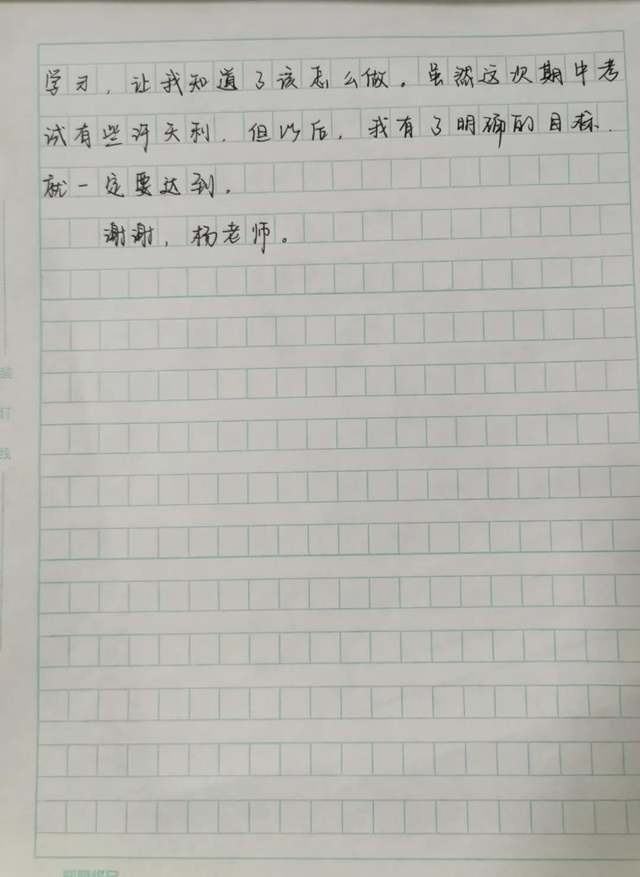 学习，让我知道了该怎么做。虽然这次期中考
试有些许失利，但以后，我有了明确的目标，
就一定要达到。
谢谢，杨老师。
装
订
线